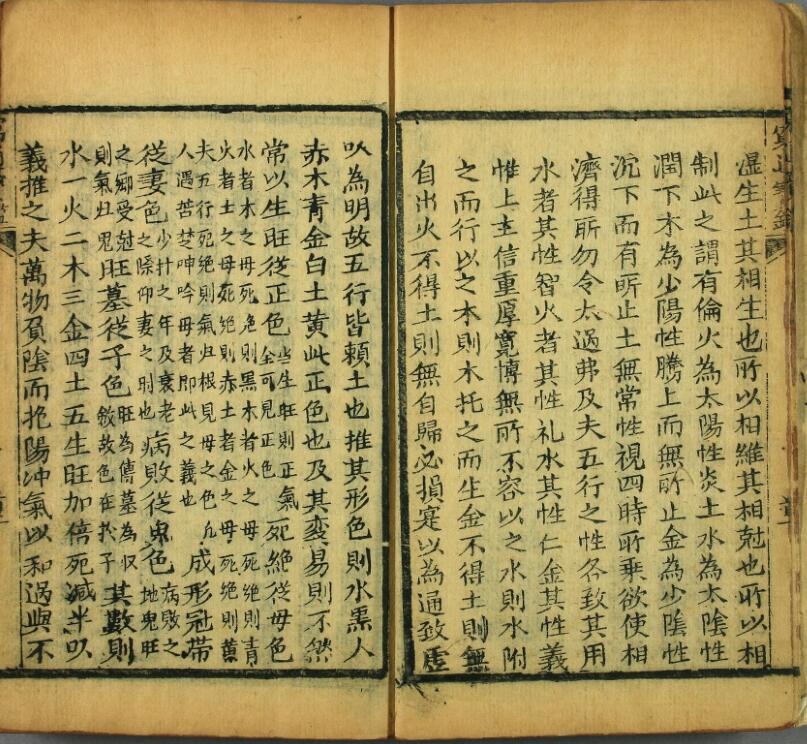 湿生土其相生也所以相維其相尅也所以相
制此之謂有倫火為太陽性炎土水為太陰性
潤下木為少陽性騰上而無所止金為少陰性
沉下而有所止土無常性視四時所乗欲使相
濟得所勿令太過弗及夫五行之性各致其用
水者其性智火者其性礼水其性仁金其性義
惟上主信重厚寛博無所不容以之水則水附
之而行以之本則木托之而生金不得土則無
自出火不得土則無自歸必損寔以為通致虗
以為明故五行皆頼土也推其形色則水黒人
赤木青金白土黄此正色也及其変易則不然
常以生旺從正色
當生旺則正氣
全可見正色
死絶從母色
水者木之母死絶則黒木者火之母死絶則青
火者土之母死絶則赤土者金之母死絶則黄
夫五行死絶則氣㱕根見母之色凢
人遇苦楚呻吟母者即此之義也
成形冠帯
從妻色
少壮之年及衰老
之際仰妻之則也
病敗從鬼色
病敗之
地鬼旺
之郷受尅
則氣㱕鬼
旺墓從子色
旺為傳墓為収
歛故色在扵子
其數則
水一火二木三金四土五生旺加倍死減半以
義推之夫萬物負陰而抱陽冲氣以和過與不